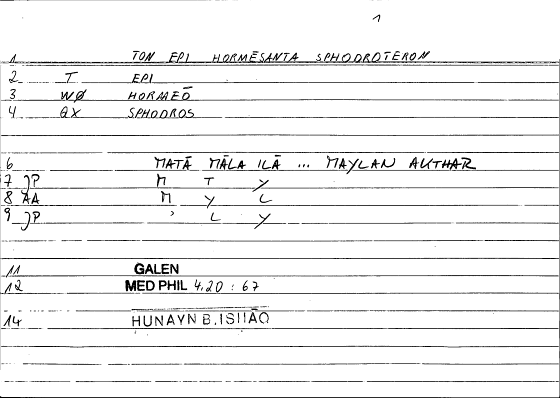 1
1 TON EPI HORMĒSANTA SPHODROTERON
2 T EPI
3 WØ HORMEŌ
4 QX SPHODROS
6 MATĀ MĀLA ILĀ ... MAYLAN AKTHAR
7 JP M T Y
8 AA M Y L
9 JP ' L Y
11 GALEN
12 MED PHIL 4,20 : 67
14 HUNAYN B. ISḤĀQ